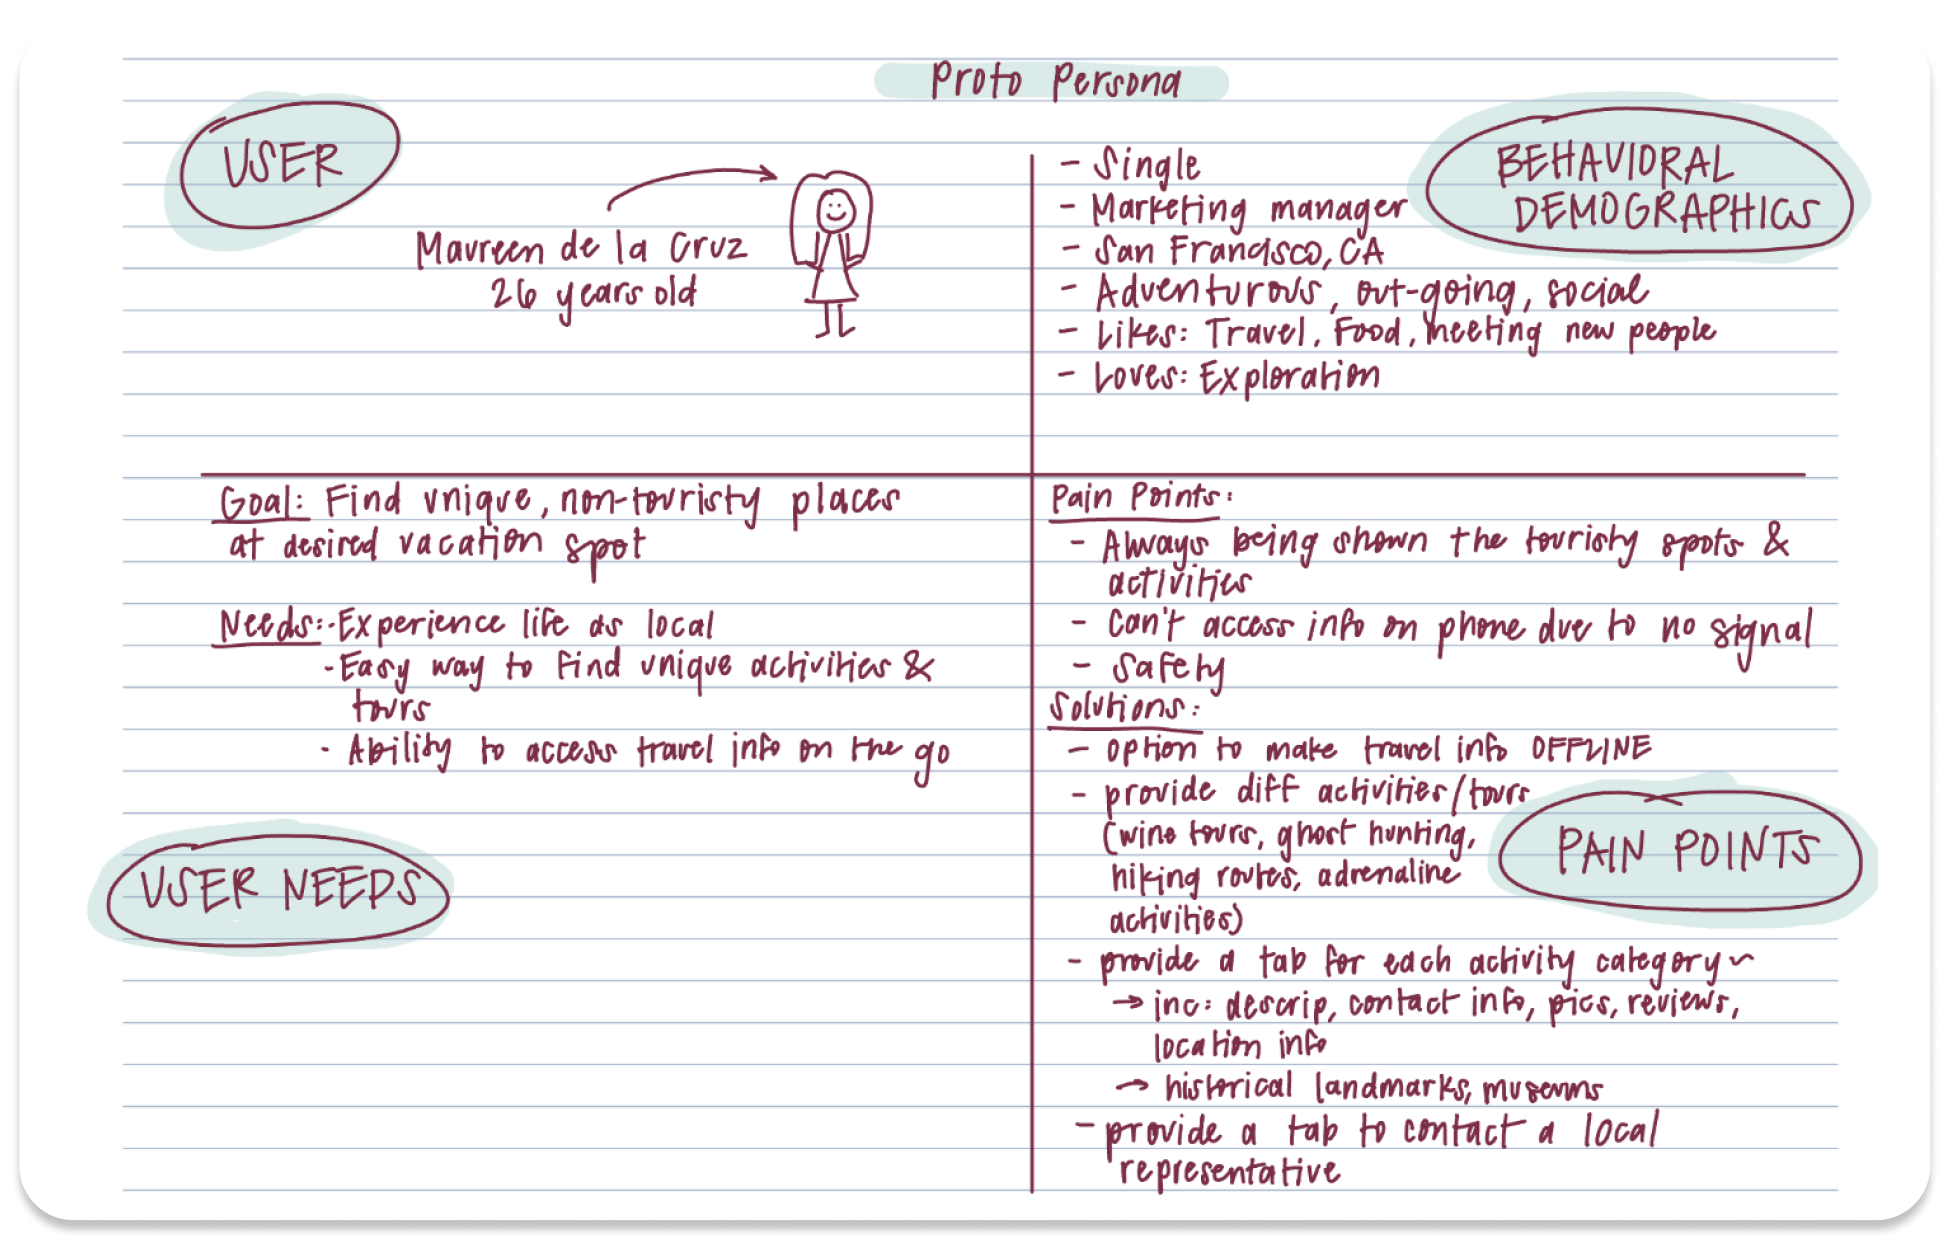 Proto Persona
USER
Maureen de la Cruz
26 years old
BEHAVIORAL
DEMOGRAPHICS
- Single
- Marketing manager
- San Francisco, CA
- Adventurous, out-going, social
- Likes: Travel, Food, meeting new people
- Loves: Exploration
Goal: Find unique, non-touristy places
at desired vacation spot
Needs: - Experience life as local
- Easy way to find unique activities &
tours
- Ability to access travel info on the go
USER NEEDS
Pain Points:
- Always being shown the touristy spots &
activities
- Can't access info on phone due to no signal
- Safety
Solutions:
- option to make travel info OFFLINE
- provide diff activities/tours
(wine tours, ghost hunting,
hiking routes, adrenaline
activities)
- provide a tab for each activity category ~
→ inc: descrip, contact info, pics, reviews,
location info
→ historical landmarks, museums
- provide a tab to contact a local
representative
PAIN POINTS